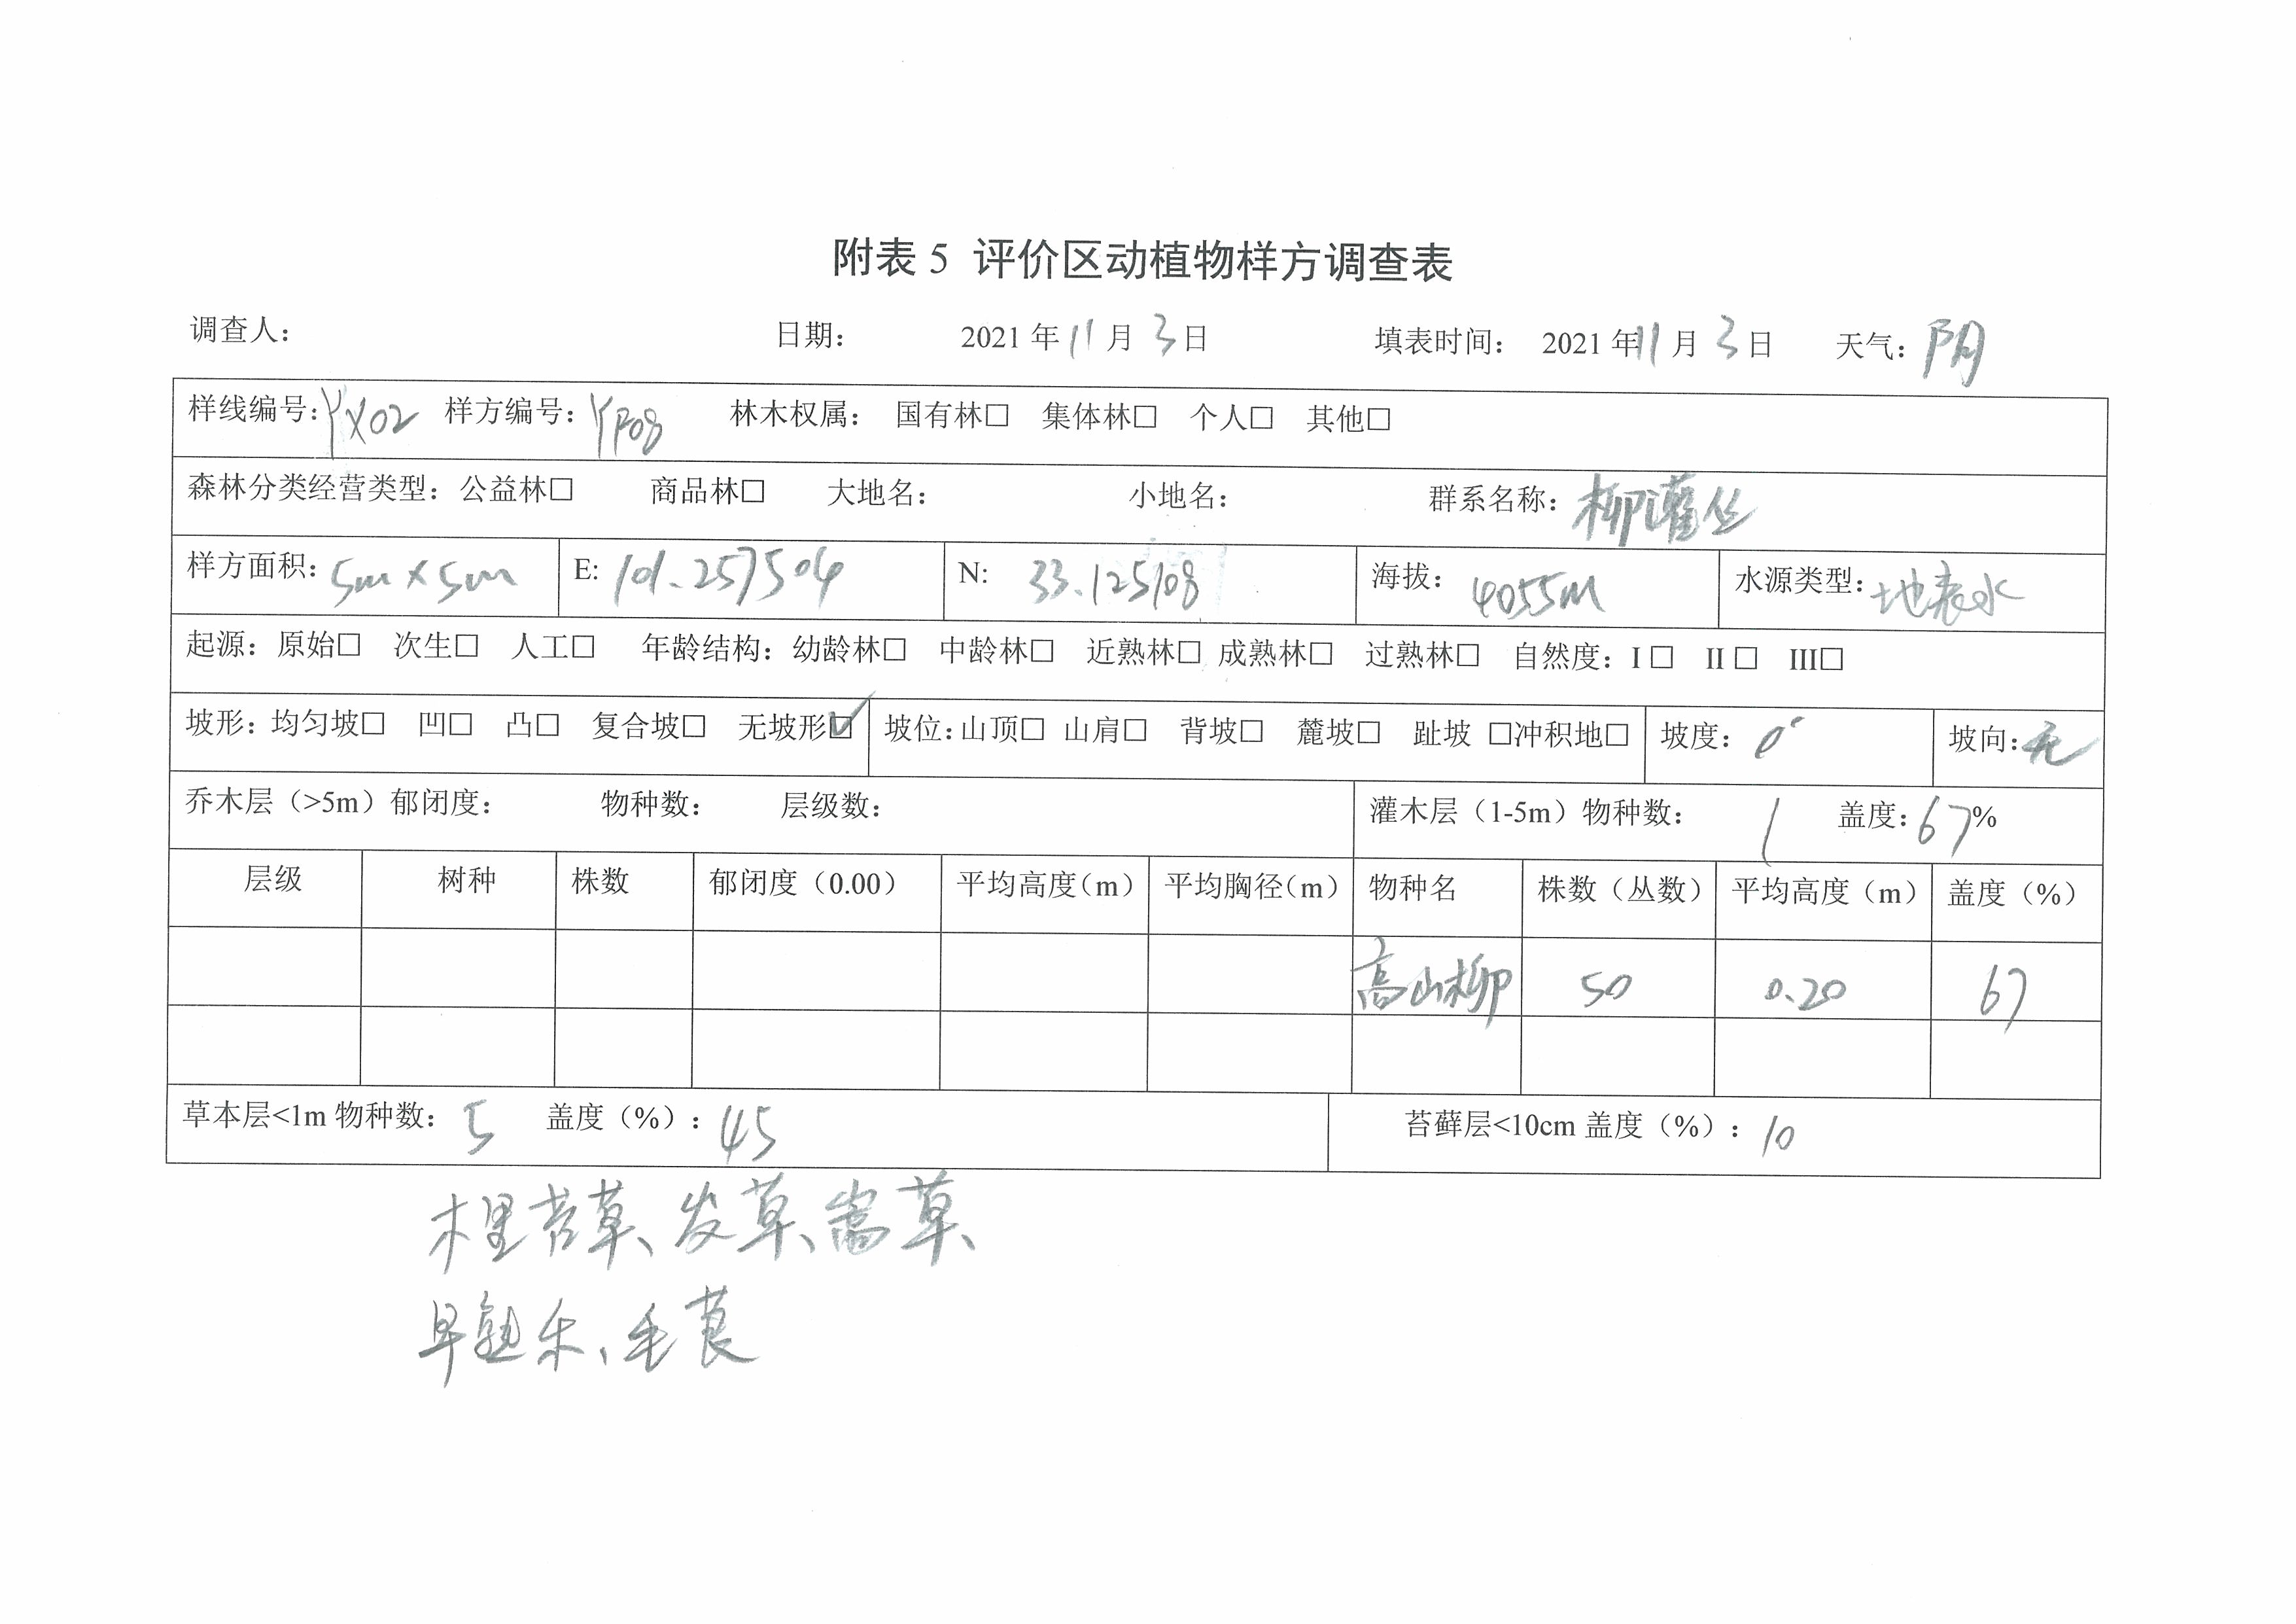 附表 5 评价区动植物样方调查表
调查人： 日期： 2021 年 11 月 3 日 填表时间： 2021 年 11 月 3 日 天气：阴
样线编号：YX02 样方编号：YF08 林木权属： 国有林□ 集体林□ 个人□ 其他□
森林分类经营类型：公益林□ 商品林□ 大地名： 小地名： 群系名称：柳灌丛
样方面积：5m×5m E: 101.257504 N: 33.125108 海拔：4055m 水源类型：地表水
起源：原始□ 次生□ 人工□ 年龄结构：幼龄林□ 中龄林□ 近熟林□ 成熟林□ 过熟林□ 自然度：I□ II□ III□
坡形：均匀坡□ 凹□ 凸□ 复合坡□ 无坡形☑ 坡位：山顶□ 山肩□ 背坡□ 麓坡□ 趾坡 □冲积地□ 坡度：0° 坡向：无
乔木层（>5m）郁闭度： 物种数： 层级数： 灌木层（1-5m）物种数： 1 盖度：67%
层级 树种 株数 郁闭度（0.00） 平均高度（m） 平均胸径（m） 物种名 株数（丛数） 平均高度（m） 盖度（%）
高山柳 50 0.20 67
草本层<1m 物种数：5 盖度（%）：45 苔藓层<10cm 盖度（%）：10
木里苔草、发草、嵩草、
早熟禾、毛茛